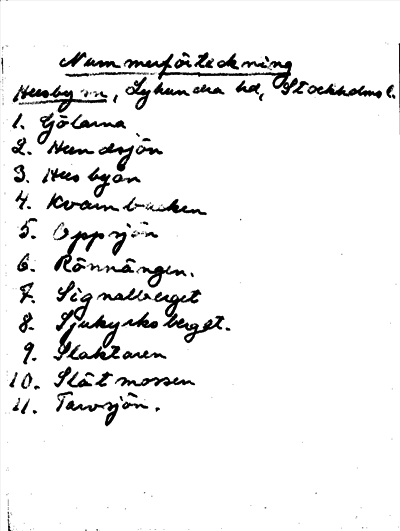 Nummerförteckning
Husby sn, Lyhundra hd, Stockholms l.
1. Gölarna
2. Hundsjön
3. Husbyån
4. Kvarnbacken
5. Oppsjön
6. Rönnängen.
7. Signalberget
8. Sjukyrksberget.
9. Slaktaren
10. Slätmossen
11. Tarvsjön.